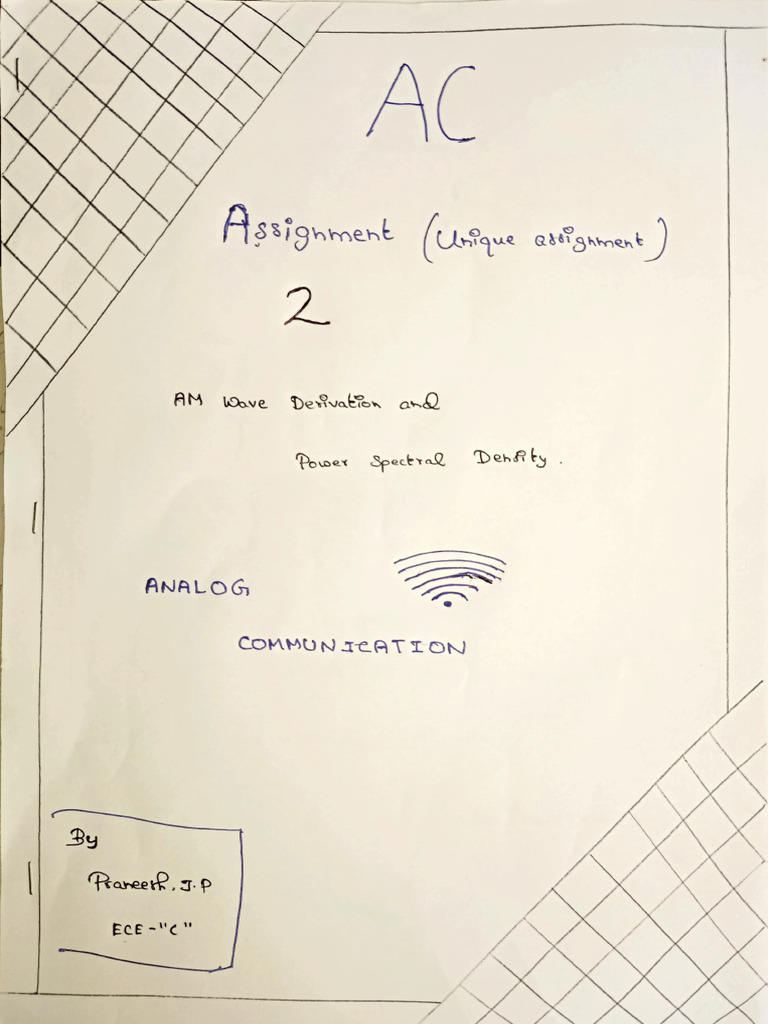 AC
Assignment (Unique assignment)
2
AM Wave Derivation and
Power Spectral Density.
ANALOG
COMMUNICATION
By
Praneesh. J.P
ECE - "C"